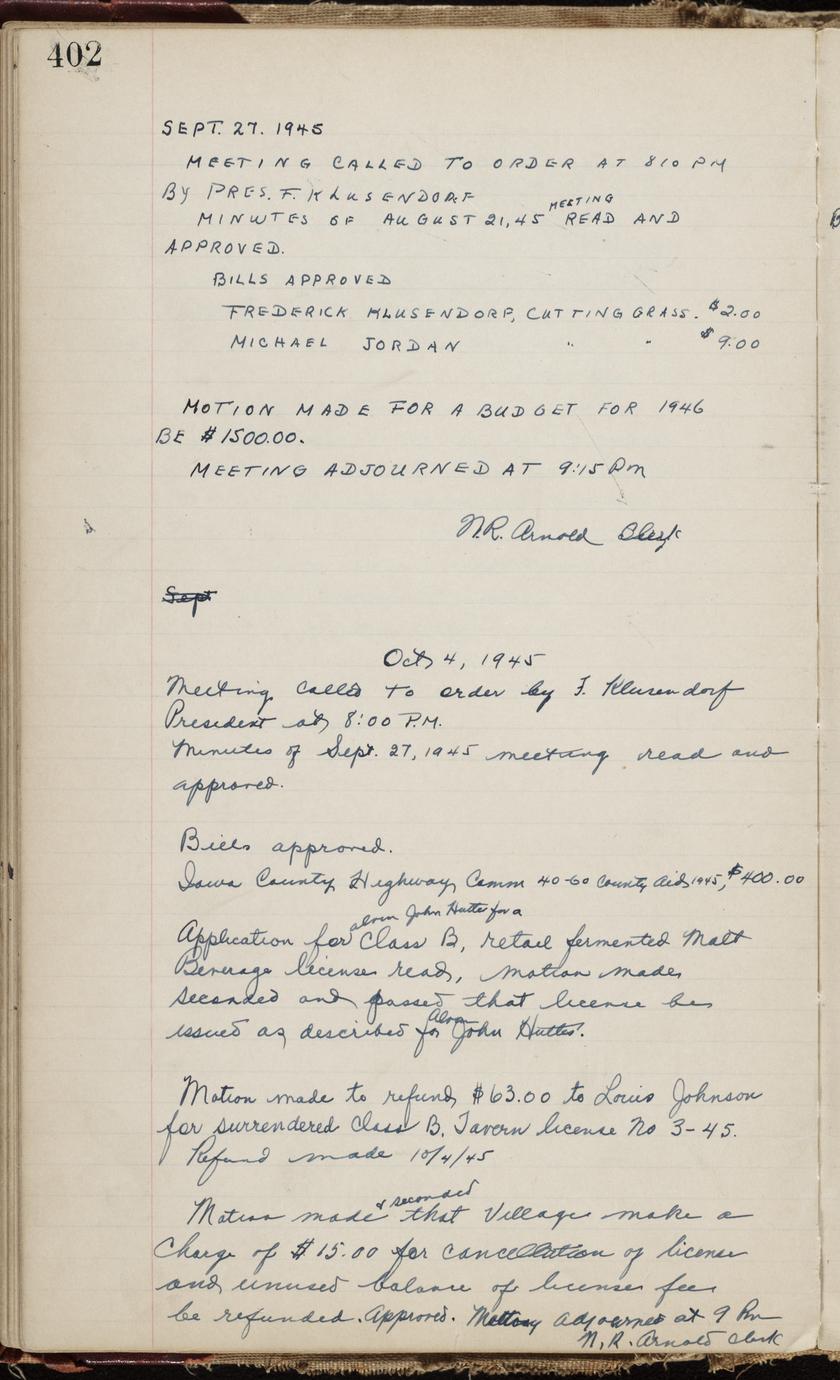 402
SEPT. 27. 1945
MEETING CALLED TO ORDER AT 810 PM
BY PRES. F. KLUSENDORF
MEETING
MINUTES OF AUGUST 21, 45 READ AND
APPROVED.
BILLS APPROVED
FREDERICK KLUSENDORF, CUTTING GRASS. $2.00
MICHAEL JORDAN " " $9.00
MOTION MADE FOR A BUDGET FOR 1946
BE $1500.00.
MEETING ADJOURNED AT 9:15 Pm
N.R. Arnold Clerk
Sept
Oct 4, 1945
Meeting called to order by F. Klusendorf
President at 8:00 P.M.
Minutes of Sept. 27, 1945 meeting read and
approved.
Bills approved.
Iowa County Highway Comm 40-60 County Aid 1945, $400.00
alvin John Hutter for a
Application for Class B, retail fermented Malt
Beverage license read, motion made
seconded and passed that license be
Alvin
issued as described for John Hutter.
Motion made to refund $63.00 to Louis Johnson
for surrendered Class B. Tavern license No 3-45.
Refund made 10/4/45
& seconded
Motion made that Village make a
Charge of $15.00 for cancellation of license
and unused balance of license fee
be refunded. Approved. Meeting adjourned at 9 Pm
N. R. Arnold Clerk